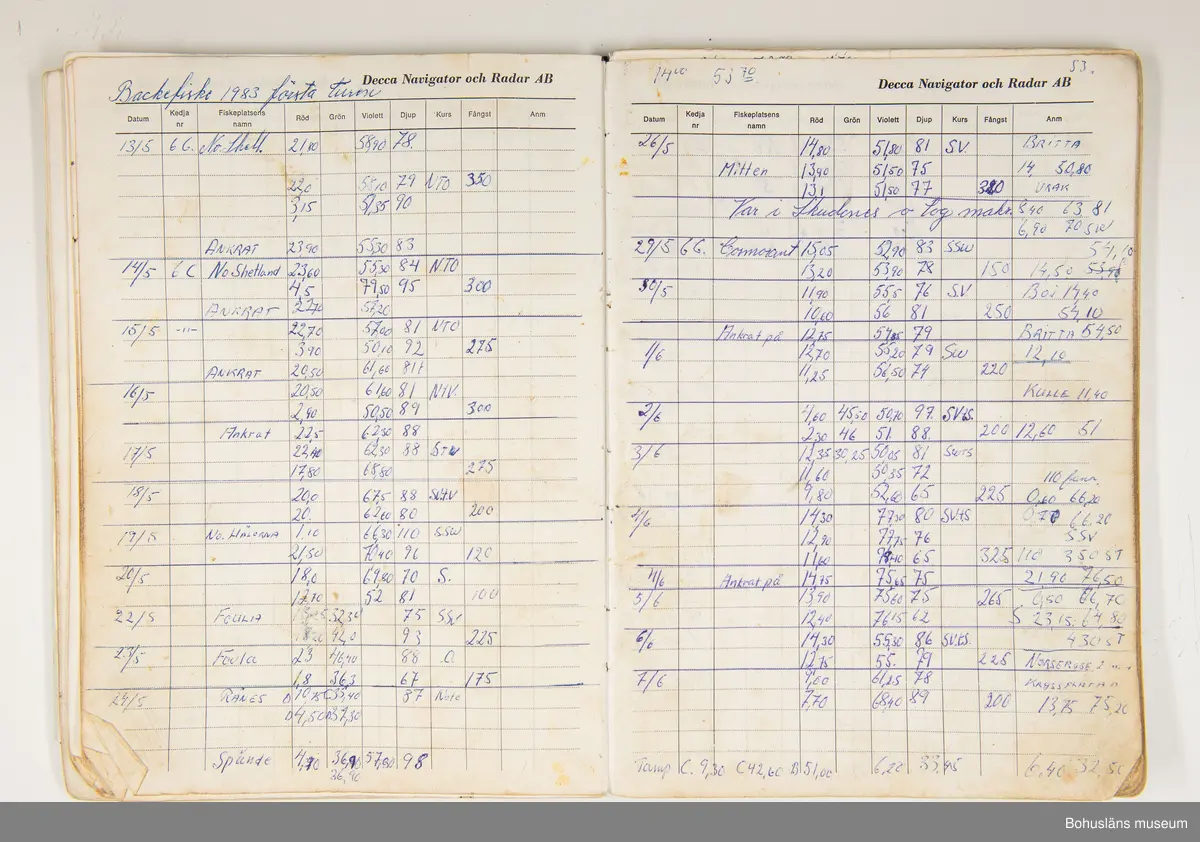 Backefiske 1983 första turen
Decca Navigator och Radar AB
Datum Kedja nr Fiskeplatsens namn Röd Grön Violett Djup Kurs Fångst Anm
13/5 6C. No. Shetl. 58,90 78.
22,0 55,10 79 NTO 350
3,15 51,35 90
ANKRAT 23,90 55,30 83
14/5 6C No. Shetland 23,60 55,30 84 NTO
4,5 79,50 95 300
ANKRAT 22,70 57,20
15/5 -"- 22,70 57,00 81 NTO
3,90 50,10 92 275
ANKRAT 20,50 61,60
16/5 20,50 61,60 81 NTV.
2,90 50,50 89 300
Ankrat 22,5 62,30 88
17/5 22,40 62,30 88
17,80 68,80 275
18/5 20,0 67,5 88
20. 62,60 80 200
19/5 No. HÅLORNA 1,10 66,30 110 SSW
21,50 70,40 96 120
20/5 18,0 69,80 70 S.
52 81 100
22/5 FOULIA 52,30 75
42,0 93 225
23/5 Foula 23 46,40 88 O.
1,8 36,3 67 175
24/5 RÅNES 33,40 87
D4,50 D37,30
Spände 4,70 36,90 57,80 98
36,90
14,00 55,70
53.
Decca Navigator och Radar AB
Datum Kedja nr Fiskeplatsens namn Röd Grön Violett Djup Kurs Fångst Anm
26/5 14,80 51,80 81 SV. BRITTA
Mitten 13,90 51,50 75 14, 50,80
13,1 51,50 77 320 VRAK
Var i Skudenes o tog makr. 8,40 63 81
6,90 70 SW
29/5 6C. Cormorant 15,05 52,90 83 SSW 54,10
13,20 53,90 78 150 14,50
30/5 11,90 55,5 76 S.V Boj 14,40
10,60 56 81 250 54,10
Ankrat på 12,75 54,85 79 BRITTA 54,50
1/6 12,70 55,20 79 SW 12,10
11,25 56,50 74 220
KULLE 11,40
2/6 4,60 45,50 50,70 97. SV.t.S.
2,30 46 51. 88. 200 12,60 51
3/6 12,35 30,25 50,05 81 SWTS
11,60 50,35 72 110 famn.
9,80 52,60 65 225 0,60 66,20
4/6 14,30 77,30 80 SV.tS 66,20
12,90 77,75 76 SSV
11,60 65 325 110 350 ST
4/6 Ankrat på 14,75 75,65 75 21,90 76,50
5/6 13,90 75,60 75 265 0,50 66,70
12,40 76,15 62 S 23,15. 67,80
6/6 14,30 55,30 86 SV.t.S. 430 ST
12,75 55. 79 225
7/6 9,60 61,25 78 KRYSSPLATTAN
7,70 68,40 89 200 13,75 75,20
Tamp C. 9,30 C42,60 B51,00 6,20 33,45 6,40 32,50
Bohusläns museum